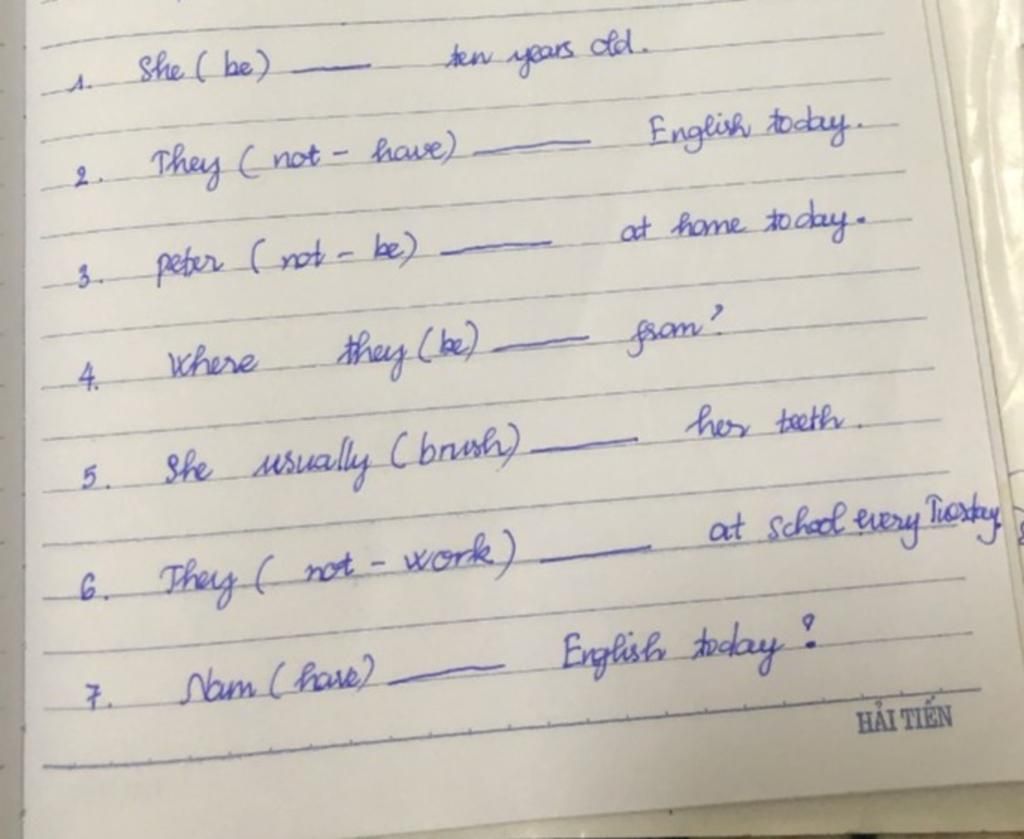 1. She ( be ) ____ ten years old.
2. They ( not - have) ____ English today.
3. peter ( not - be) ____ at home today.
4. Where they (be) ____ from?
5. She usually (brush) ____ her teeth.
6. They ( not - work) ____ at school every Tuesday
7. Nam ( have) ____ English today?
HẢI TIẾN